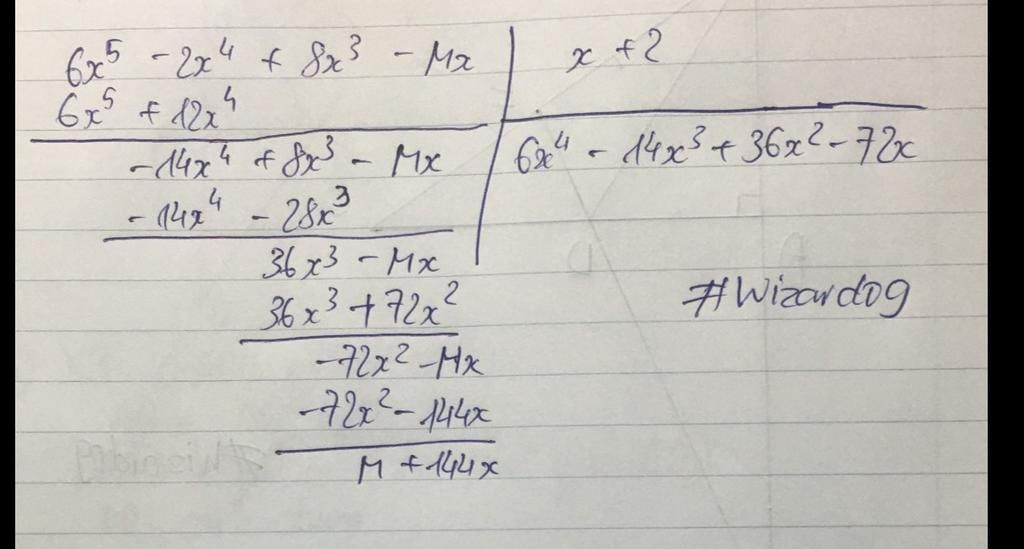 6x⁵ - 2x⁴ + 8x³ - Mx
x + 2
6x⁵ + 12x⁴
6x⁴ - 14x³ + 36x² - 72x
-14x⁴ + 8x³ - Mx
-14x⁴ - 28x³
36x³ - Mx
36x³ + 72x²
-72x² - Mx
-72x² - 144x
M + 144x
#Wizard09